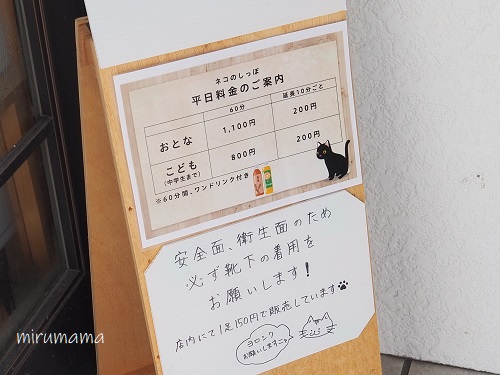 ネコのしっぽ
平日料金のご案内
60分 延長10分ごと
おとな 1,100円 200円
こども 800円 200円
(中学生まで)
※60分間、ワンドリンク付き
安全面、衛生面のため
必ず靴下の着用を
お願いします!
店内にて1足150円で販売しています
ヨロシク
お願いしますニャ
mirumama